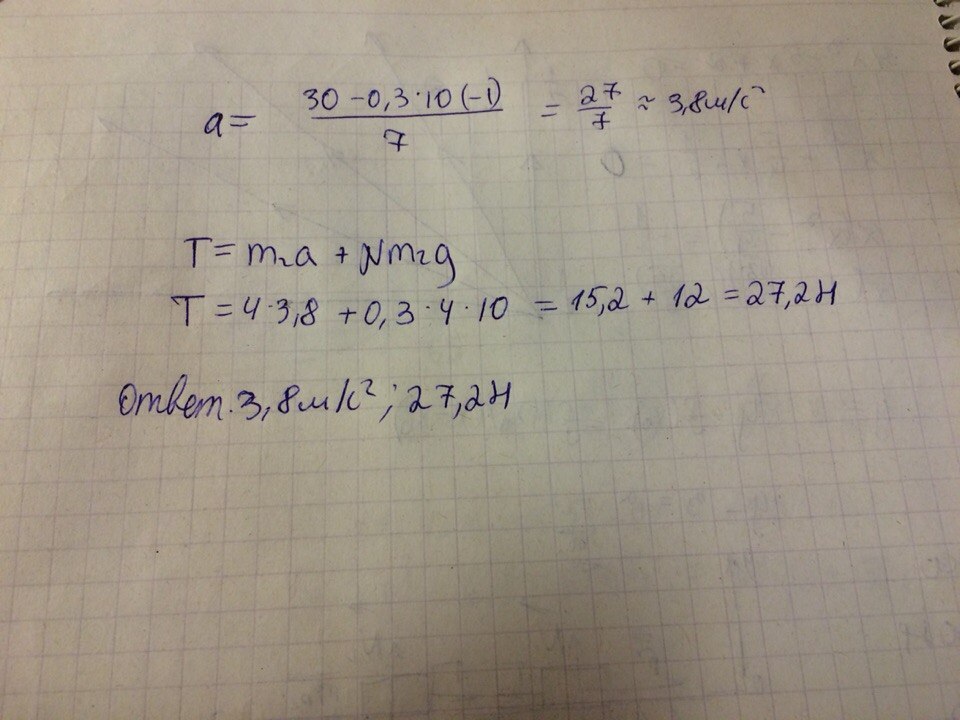 a = \frac{30 - 0,3 \cdot 10 (-1)}{7} = \frac{27}{7} ≈ 3,8 м/с²
T = m₂a + μm₂g
T = 4 · 3,8 + 0,3 · 4 · 10 = 15,2 + 12 = 27,2 Н
Ответ. 3,8 м/с² ; 27,2 Н